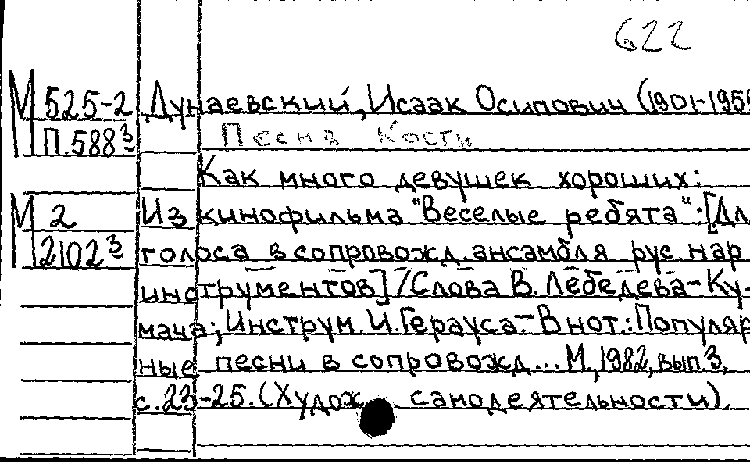 622
М 525-2 Дунаевский, Исаак Осипович (1901-1955
П.588³ Песня Кости
Как много девушек хороших:
М 2 Из кинофильма "Веселые ребята": [Дл
2102³ голоса в сопровожд. ансамбля рус. нар
инструментов] / Слова В. Лебедева-Ку-
мача; Инструм. И. Герауса - В нот.: Популяр
ные песни в сопровожд... М., 1982, вып. 3,
с. 23-25. (Худож. самодеятельности).